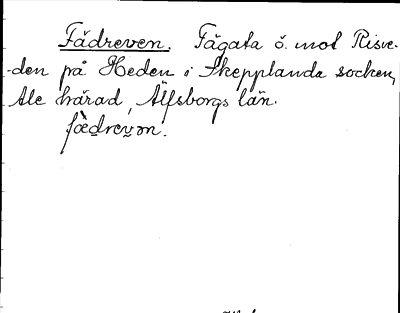 Fädreven. Fägata ö. mot Risve-
den på Heden i Skepplanda socken,
Ale härad, Älfsborgs län.
fæ̀drevən.